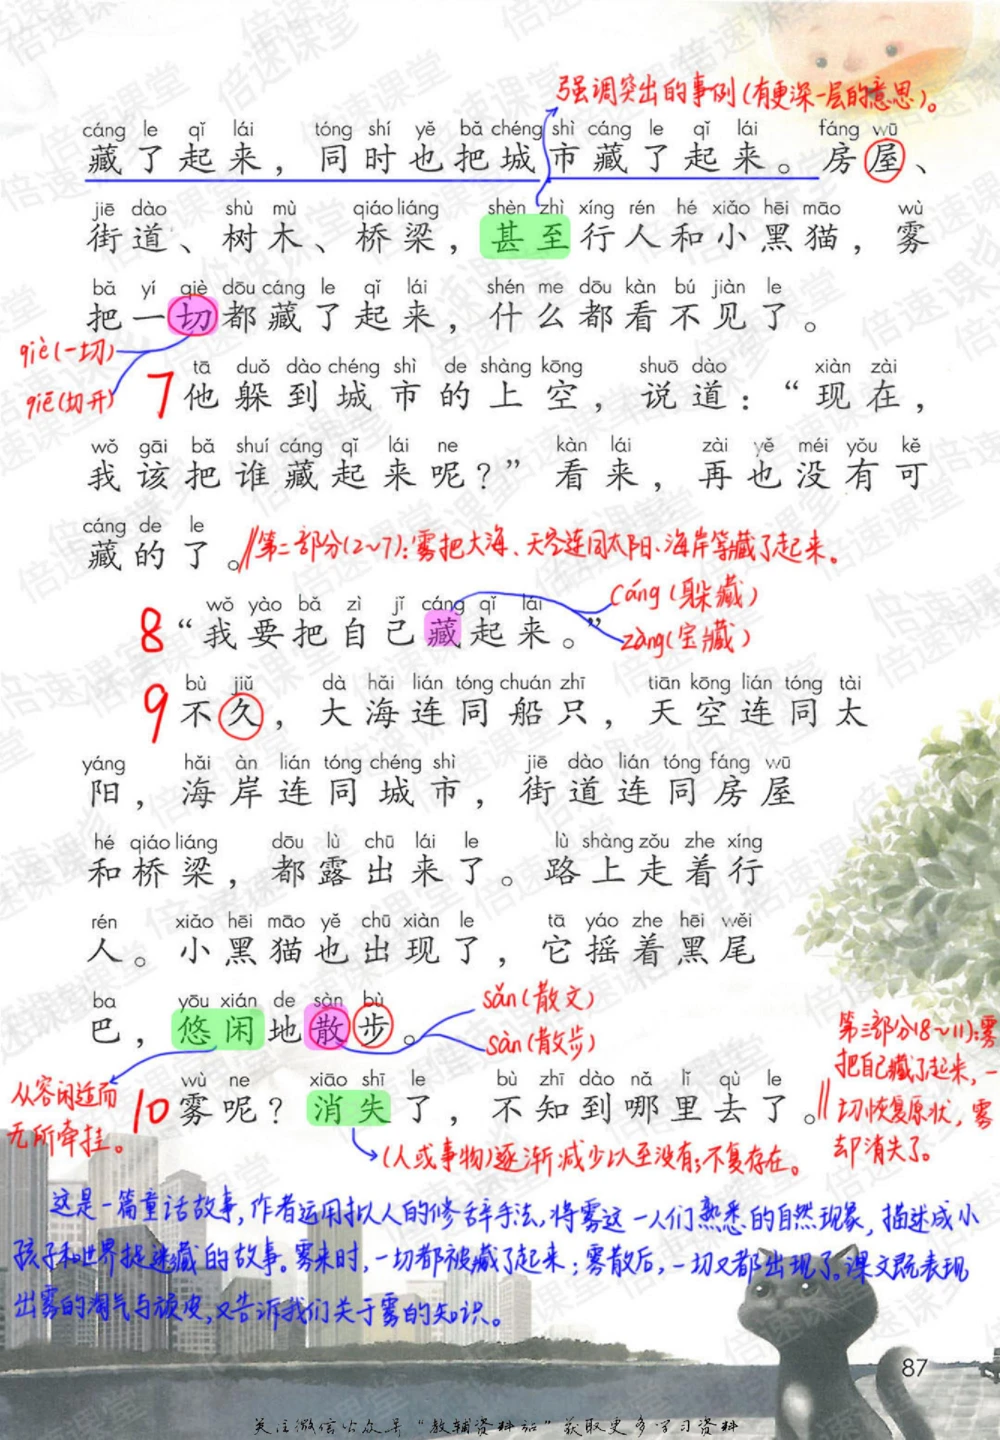 强调突出的事例(有更深一层的意思)。
cáng le qǐ lái tóng shí yě bǎ chéng shì cáng le qǐ lái fáng wū
藏了起来，同时也把城市藏了起来。房屋、
jiē dào shù mù qiáo liáng shèn zhì xíng rén hé xiǎo hēi māo wù
街道、树木、桥梁，甚至行人和小黑猫，雾
bǎ yí qiè dōu cáng le qǐ lái shén me dōu kàn bú jiàn le
把一切都藏了起来，什么都看不见了。
qiè(一切)
qiē(切开)
tā duǒ dào chéng shì de shàng kōng shuō dào xiàn zài
7他躲到城市的上空，说道：“现在，
wǒ gāi bǎ shuí cáng qǐ lái ne kàn lái zài yě méi yǒu kě
我该把谁藏起来呢？”看来，再也没有可
cáng de le
藏的了。 ‖第二部分(2~7):雾把大海、天空连同太阳、海岸等藏了起来。
wǒ yào bǎ zì jǐ cáng qǐ lái
cáng(躲藏)
8“我要把自己藏起来。”
zàng(宝藏)
bù jiǔ dà hǎi lián tóng chuán zhī tiān kōng lián tóng tài
9不久，大海连同船只，天空连同太
yáng hǎi àn lián tóng chéng shì jiē dào lián tóng fáng wū
阳，海岸连同城市，街道连同房屋
hé qiáo liáng dōu lù chū lái le lù shàng zǒu zhe xíng
和桥梁，都露出来了。路上走着行
rén xiǎo hēi māo yě chū xiàn le tā yáo zhe hēi wěi
人。小黑猫也出现了，它摇着黑尾
ba yōu xián de sàn bù
巴，悠闲地散步。
sǎn(散文)
sàn(散步)
从容闲适而
无所牵挂。
wù ne xiāo shī le bù zhī dào nǎ lǐ qù le
10雾呢？消失了，不知到哪里去了。‖
第三部分(8~11):雾
把自己藏了起来，一
切恢复原状，雾
却消失了。
(人或事物)逐渐减少以至没有;不复存在。
这是一篇童话故事，作者运用拟人的修辞手法，将雾这一人们熟悉的自然现象，描述成小
孩子和世界捉迷藏的故事。雾来时，一切都被藏了起来；雾散后，一切又都出现了。课文既表现
出雾的淘气与顽皮，又告诉我们关于雾的知识。
87
关注微信公众号“教辅资料站”获取更多学习资料
倍速课堂